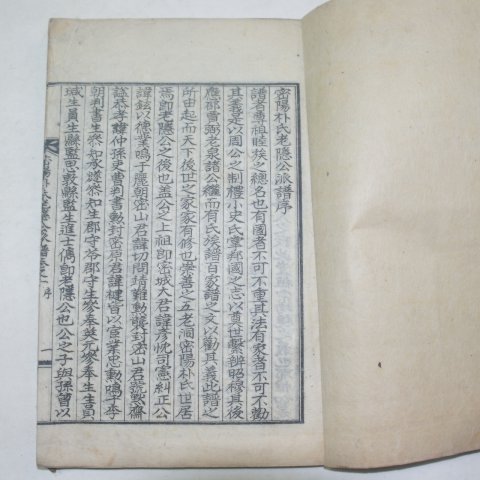 密陽朴氏老隱公派譜序
譜者尊祖睦族之總名也有國者不可不重其法有家者不可不勸
其義是以周公之制禮小史氏掌邦國之志以奠世繫辨昭穆其後
應祁賈弼老泉諸公繼而有氏族譜百家譜之文以勸其義此譜之
所由起而天下後世之家家有修也崇善之五老洞密陽朴氏世居
焉卽老隱公之後也盖公之上祖卽密城大君諱彦忱司憲糾正公
諱鉉以德業鳴于麗朝密山君諱切問靖難勳襲封密山君號默齋
謚恭孝諱仲孫吏曹判書勳封密原君諱楗皆以宣業忠勳鳴于本
朝判書生 知承 知生郡守 郡守生參奉英元參奉生生員
城生員生縣監忠敦縣監生進士僑卽老隱公也公之子與孫曾以
密陽朴氏老隱公派譜卷之一 序 一